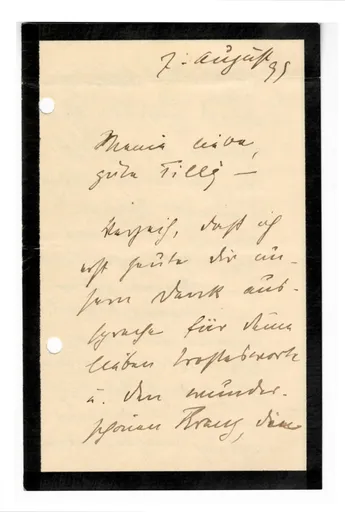 7. August 99
Meine liebe,
gute Tilly —
Verzeih, daß ich
erst heute dir un-
sern Dank aus-
spreche für deine
lieben Trostesworte
u. den wunder-
schönen Kranz, den